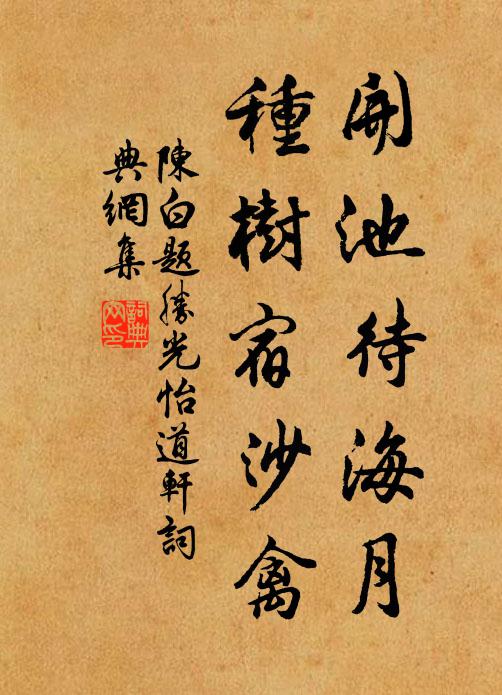 開池待海月
種樹宿沙禽
陳白題勝光怡道軒詞
典網集
詞典
網印